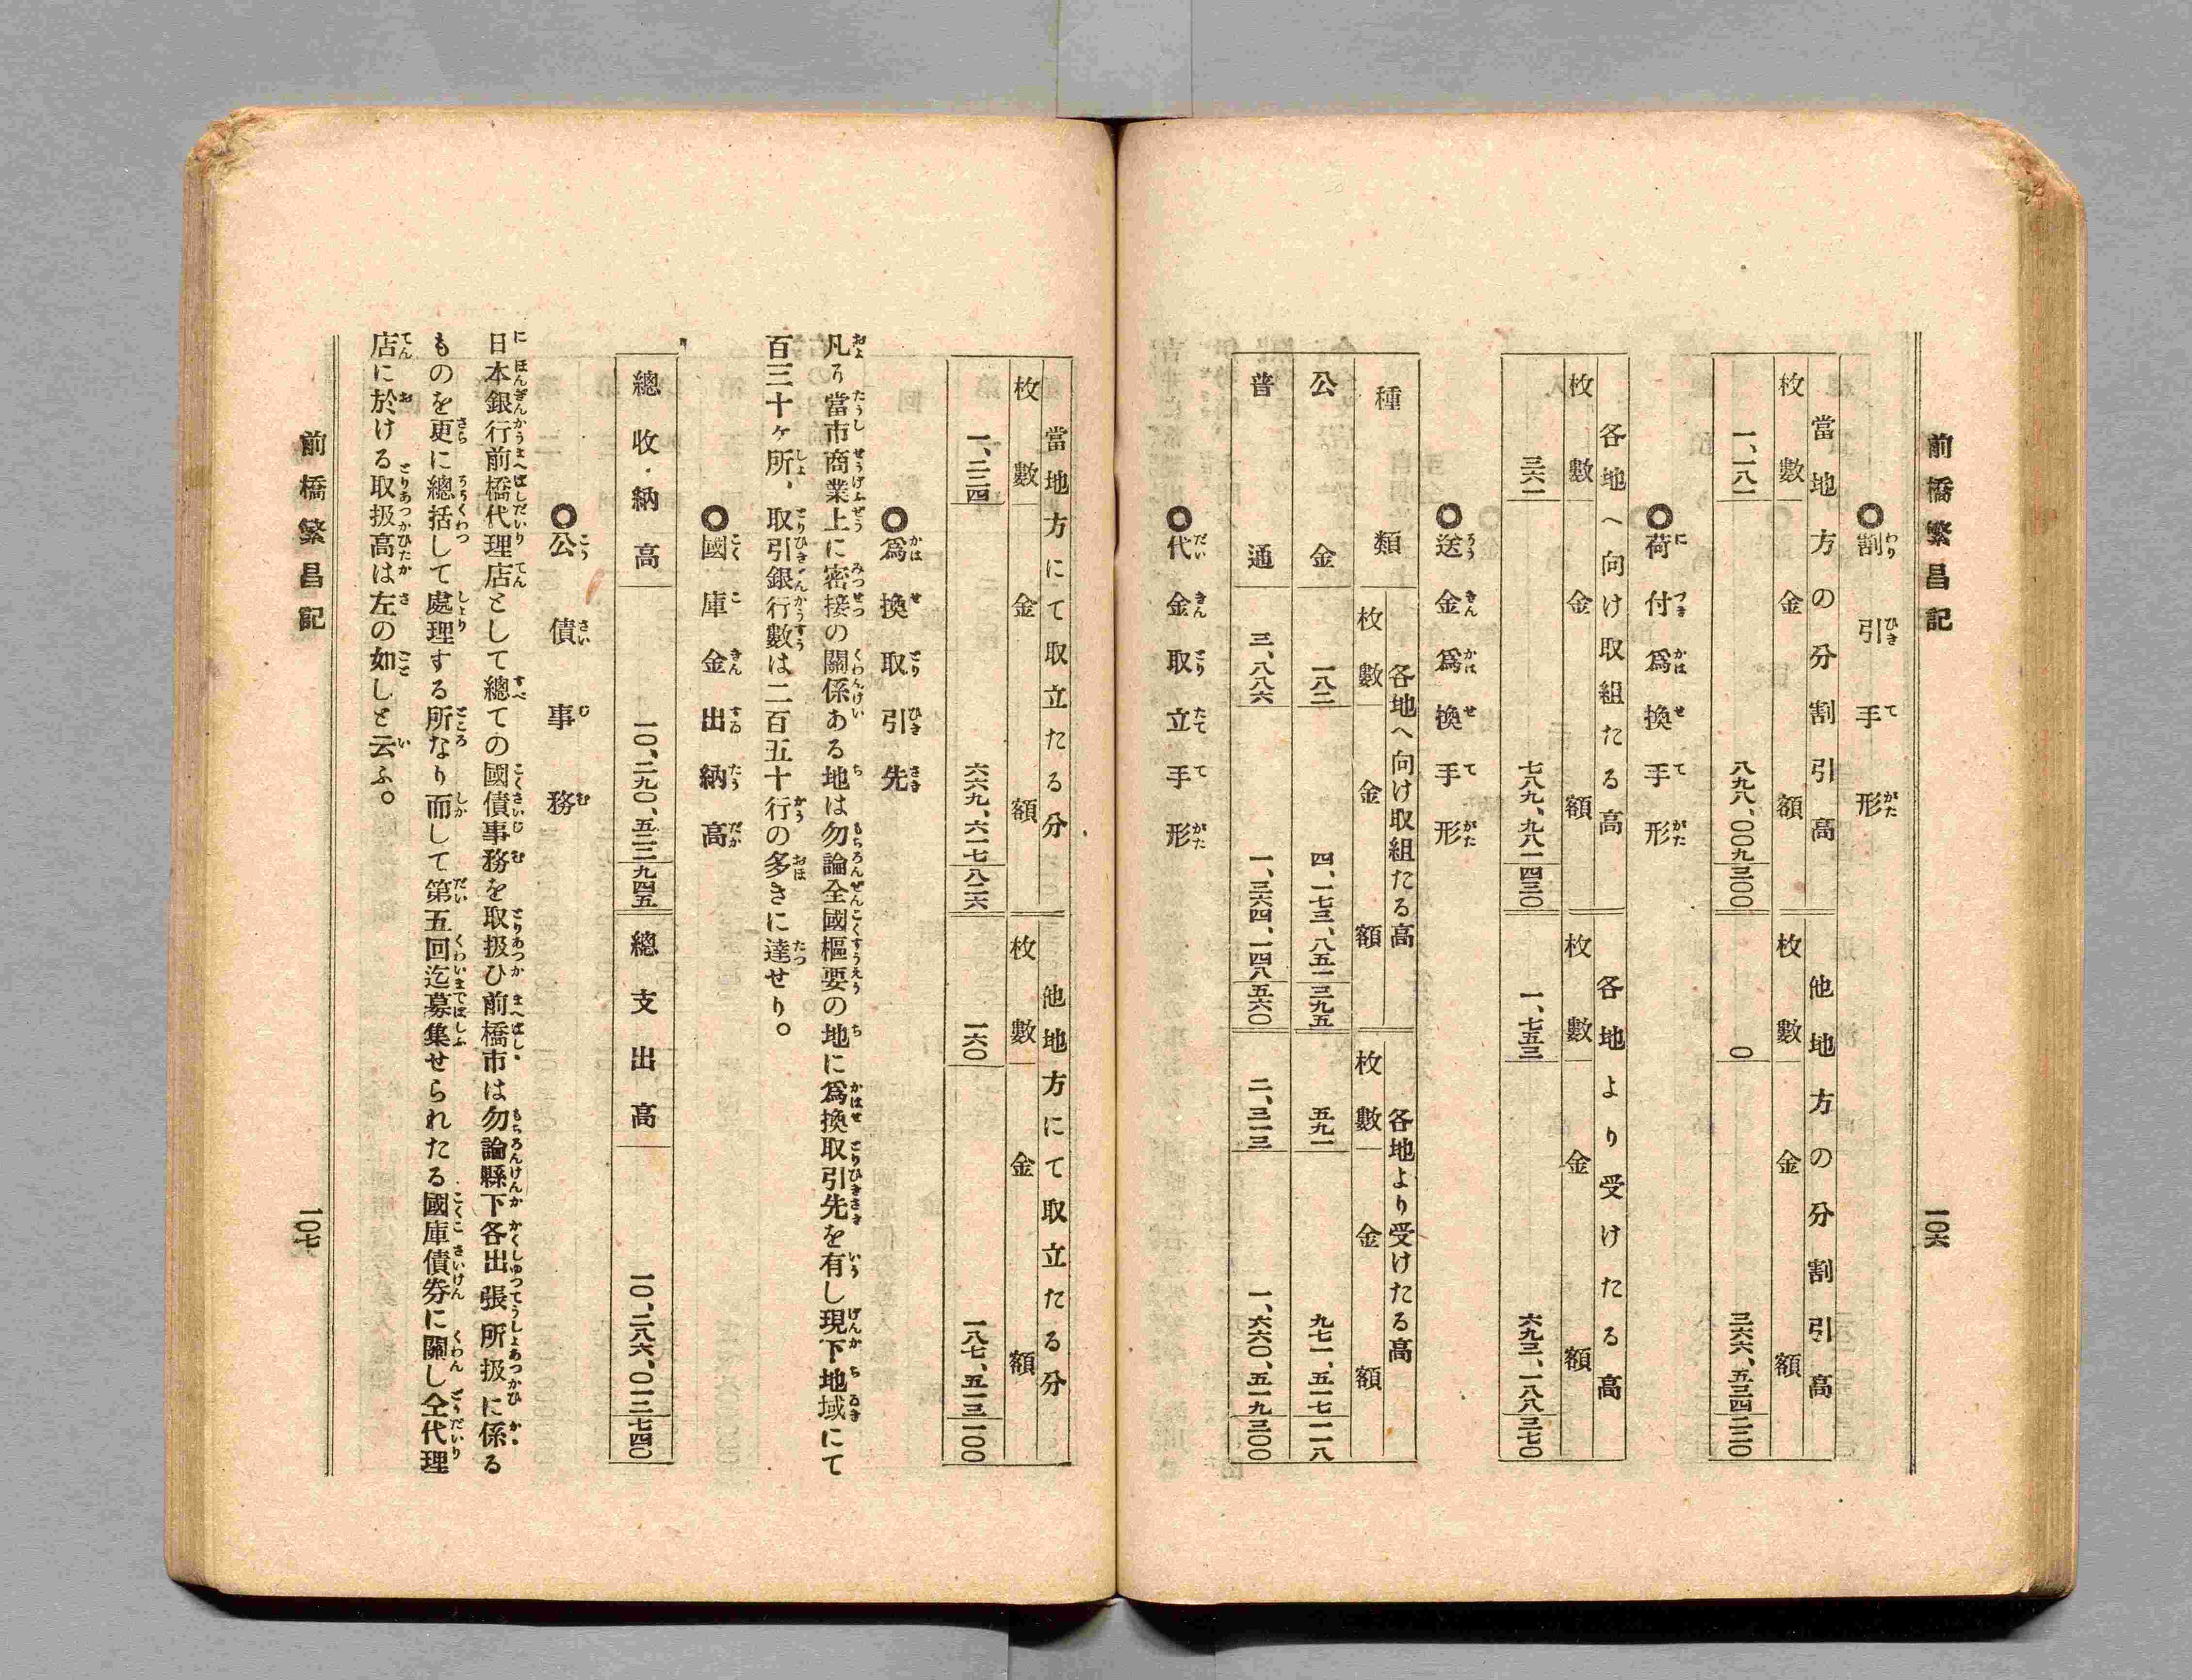 前橋繁昌記
一〇六
◎割引手形
當地方の分割引高
他地方の分割引高
枚數
金額
枚數
金額
一、一八一
八九八、〇〇九三〇〇
〇
三六六、五三四二二〇
◎荷付爲換手形
各地へ向け取組たる高
各地より受けたる高
枚數
金額
枚數
金額
三六一
七八九、九八一四三〇
一、七五三
六九三、一八八三七〇
◎送金爲換手形
種類
各地へ向け取組たる高
各地より受けたる高
枚數
金額
枚數
金額
公金
一八二
四、一七三、八五一三九五
五九一
九七一、五一七一一八
普通
三、八八六
一、三六四、一四八五六〇
二、三一三
一、六六〇、五一九三〇〇
◎代金取立手形
當地方にて取立たる分
他地方にて取立たる分
枚數
金額
枚數
金額
一、二二四
六六九、六一七八二六
一六〇
一八七、五一三一〇〇
◎爲換取引先
凡そ當市商業上に密接の關係ある地は勿論全國樞要の地に爲換取引先を有し現下地域にて
百三十ヶ所、取引銀行數は二百五十行の多きに達せり。
◎國庫金出納高
總收納高
一〇、二九〇、五二二九四五
總支出高
一〇、二八六、〇一二七四〇
◎公債事務
日本銀行前橋代理店として總ての國債事務を取扱ひ前橋市は勿論縣下各出張所扱に係る
ものを更に總括して處理する所なり而して第五回迄募集せられたる國庫債劵に關し仝代理
店に於ける取扱高は左の如しと云ふ。
前橋繁昌記
一〇七